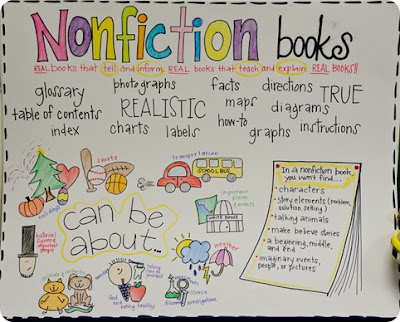 Nonfiction books
REAL books that tell and inform. REAL books that teach and explain. REAL BOOKS!!
glossary photographs facts directions TRUE
table of contents REALISTIC maps diagrams
index charts labels how-to graphs instructions
sports
transportation
SCHOOL BUS
holidays
important places
events
WHITE HOUSE
can be about...
weather
science
food and eating healthy
taking care of yourself
In a nonfiction book, you won't find...
• characters
• story elements (problem, solution, setting)
• talking animals
• make believe stories
• a beginning, middle, and end
• imaginary events, people, or pictures